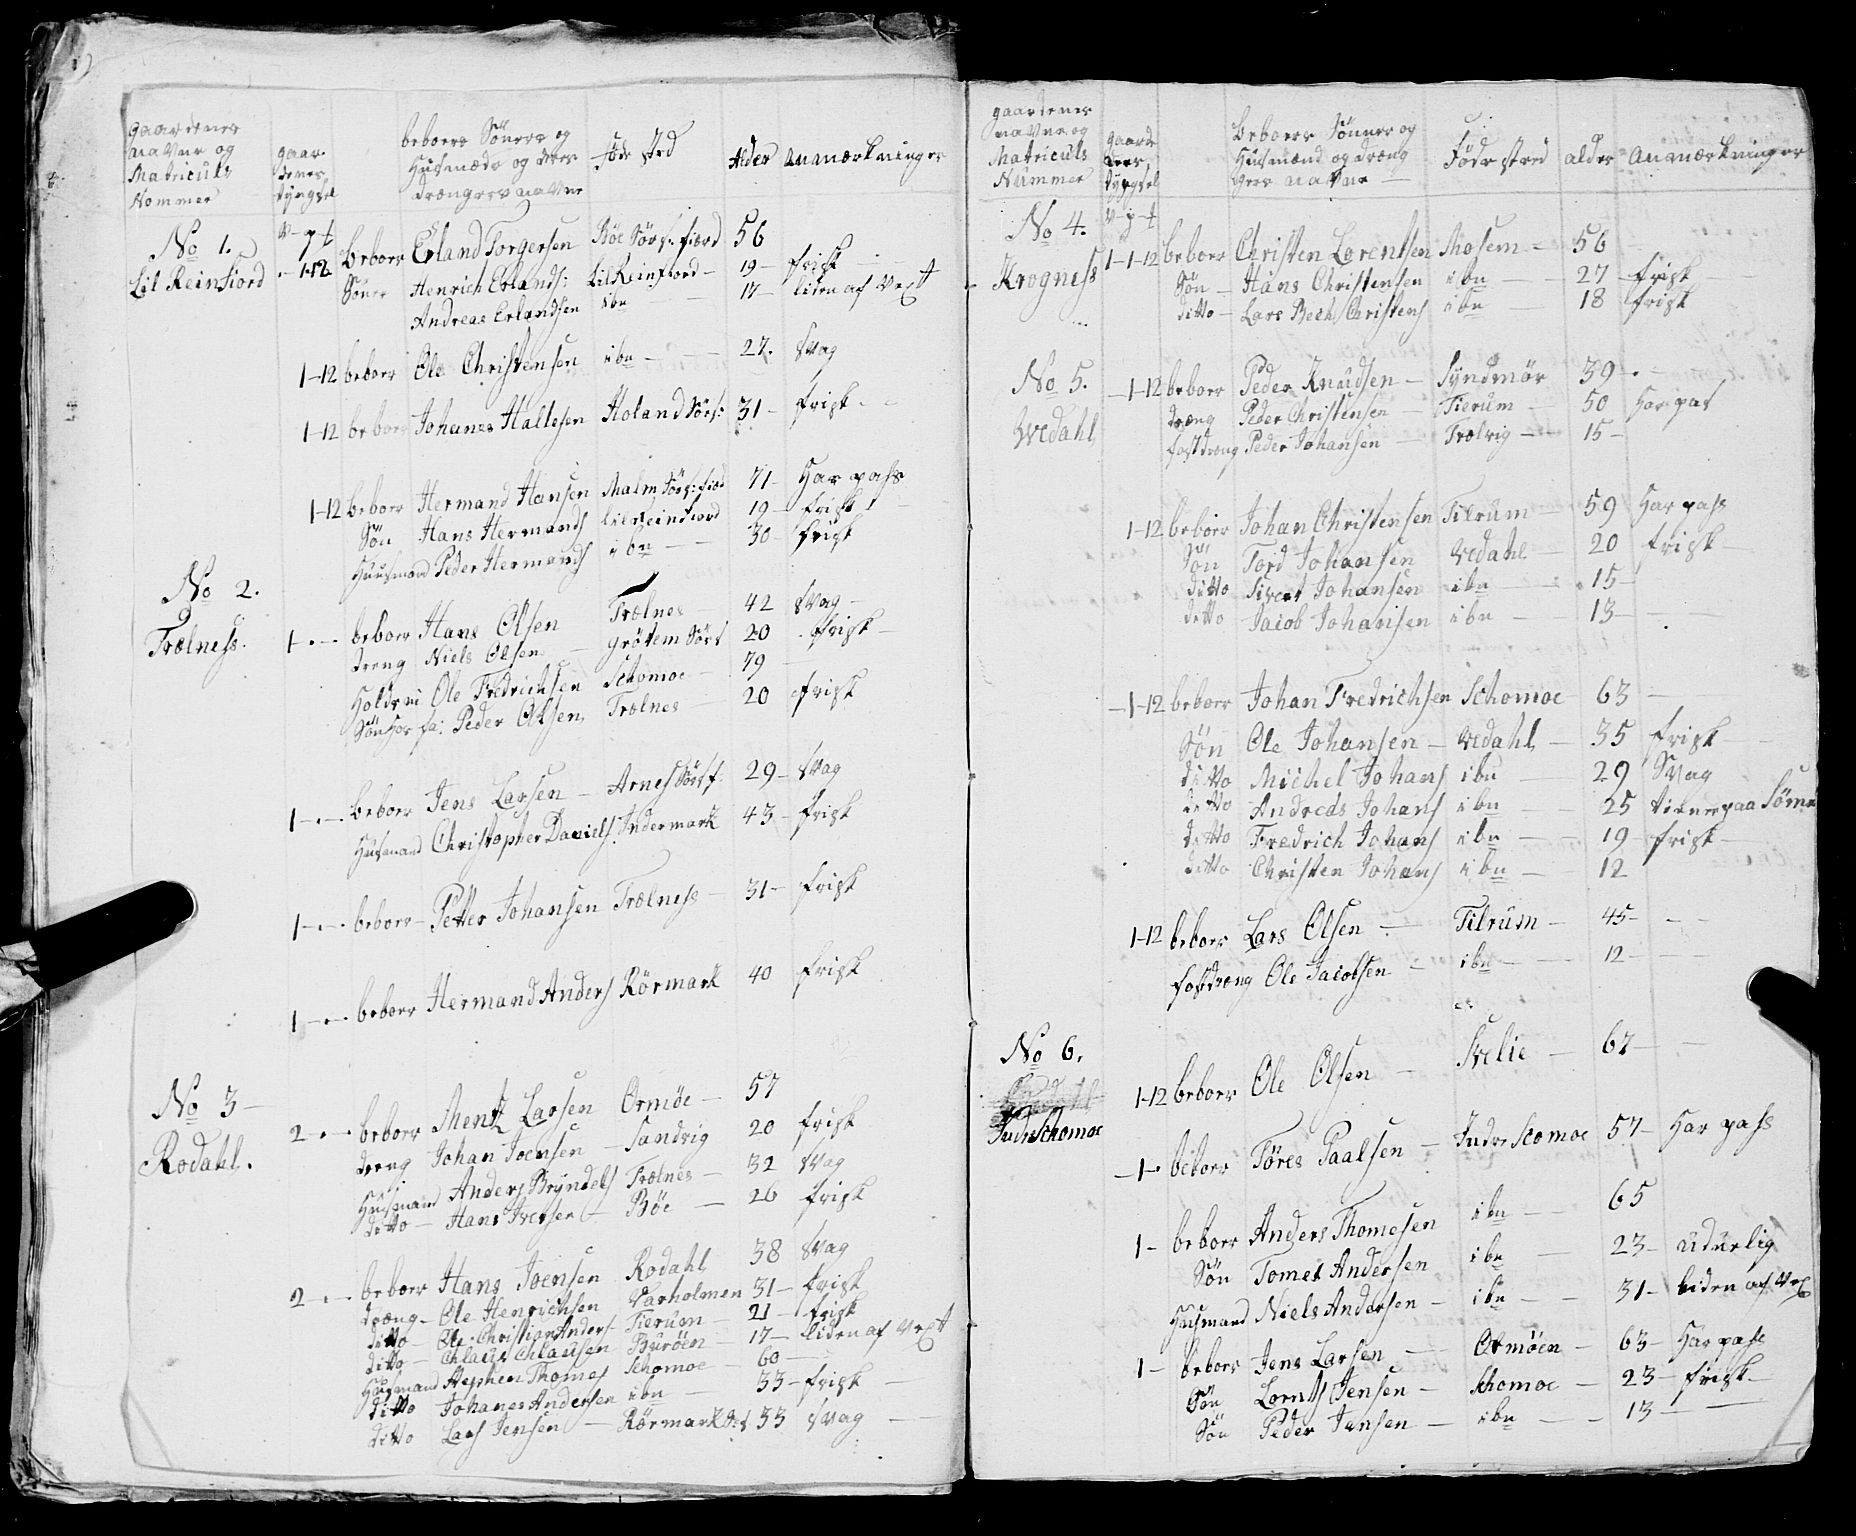 gaardenes navne og Matriculs Nommer
gaardenes tyngsel
beboere Sönner og Husmænds og deres drængers navne
föde sted
Alder
anmærkninger
V p ₶
No 1. Lil Reinfiord
- 1-12 beboer Erland Torgersen Böe Sörs: fiord 56
Söner Henrich Erlands: Lil Reinfiord - 19 - frisk
Andreas Erlandsen ibn 17 - liden af vext
1-12 beboer Ole Christensen ibn - 27. svag
1-12 beboer Johanes Hallesen Holand Sörs: 31 - frisk
1-12 beboer Hermand Hansen Malm Sörs: fiord 71 - Har pass
Sön Hans Hermands Lil Reinfiord 19 - frisk
Huusmand Peder Hermands ibn 30 - frisk
No 2. Trælness.
1 - - beboer Hans Olsen Trælnes 42 svag
dreng Niels Olsen grötem Sörs 20 - frisk
Ole Fredrichsen Schomoe 79
Sön Peder Olsen Trælnes 20 frisk
1 - - beboer Jens Larsen - Arnes Sörsf: 29 - svag
Husmand Christopher Daniels Indermark 43 - frisk
1 - - beboer - Petter Johansen Trælness - 31 - frisk
1 - - beboer Hermand Anders Rörmark 40 frisk
No 3 - Rodahl.
2 - - beboer Mentz Larsen Ormöe - 57
dreng Johan Joensen - Sandvig 20 frisk
Husmand Anders Bryndels Trælnes - 32 svag
ditto - Hans Iversen - Böe - 26 frisk
2 - - beboer Hans Joensen Rodahl 38 svag
dræng - Ole Henrichsen Varholmen 31 - frisk
ditto - Ole Christian Anders Tierum - 21 - frisk
ditto - Chlaus Chlausen Buröen - 17 - liden af vext
Husmand Stephen Thomes Schomoe - 60 -
ditto Johanes Andersen ibn - 33 - frisk
ditto Lars Jensen - Rörmark 33 svag
gaardenes navne og Matriculs Nummer
gaardenes tyngsel
beboere Sönner og Husmænd og drængers navne
Föde sted
alder
anmærkninger
V - p - ₶
No 4. Krogness
1-1-12 beboer Christen Lorentsen Mosem - 56
Sön - Hans Christensen ibn - 27 - frisk
ditto - Lars Bech Christens ibn - 18 frisk
No 5. Wedahl
- 1-12 beboer Peder Knudsen - Syndmör 39 -
dræng Peder Christensen Tierum 50 Har pas
fostdreng Peder Johansen - Trælvig - 15 -
1-12 beboer Johan Christensen Tilrum - 59 Har pass
Sön Tord Johansen Vedahl - 20 frisk
ditto Sivert Johansen ibn - 15 -
ditto Jacob Johansen ibn - 13 -
- 1-12 beboer Johan Fredrichsen Schomoe 63 -
Sön Ole Johansen - Vedahl - 35 frisk
ditto Michel Johans ibn - 29 Svag
ditto Andreas Johans ibn - 25 tiener paa Sömn
ditto Fredrich Johans ibn - 19 frisk
ditto Christen Johans ibn - 12
1-12 beboer Lars Olsen - Tilrum - 45 -
fostdreng Ole Jacobsen - ibn - 12 -
No 6. Indreschomoe
1-12 beboer Ole Olsen - Svelie - 67 -
- 1 - beboer Töres Paalsen - Indre Scomoe 57 - Har pass
1 - beboer Anders Thomesen ibn - 65
Sön Tomes Andersen ibn 23 - udurlig
Husmand Niels Andersen - ibn - 31 - liden af vex
1 - beboer Jens Larsen - Ormöen - 63 - Har pass
Sön Lornts Jensen - Schomoe - 23 - frisk -
Sön Peder Jensen - ibn - 13 -